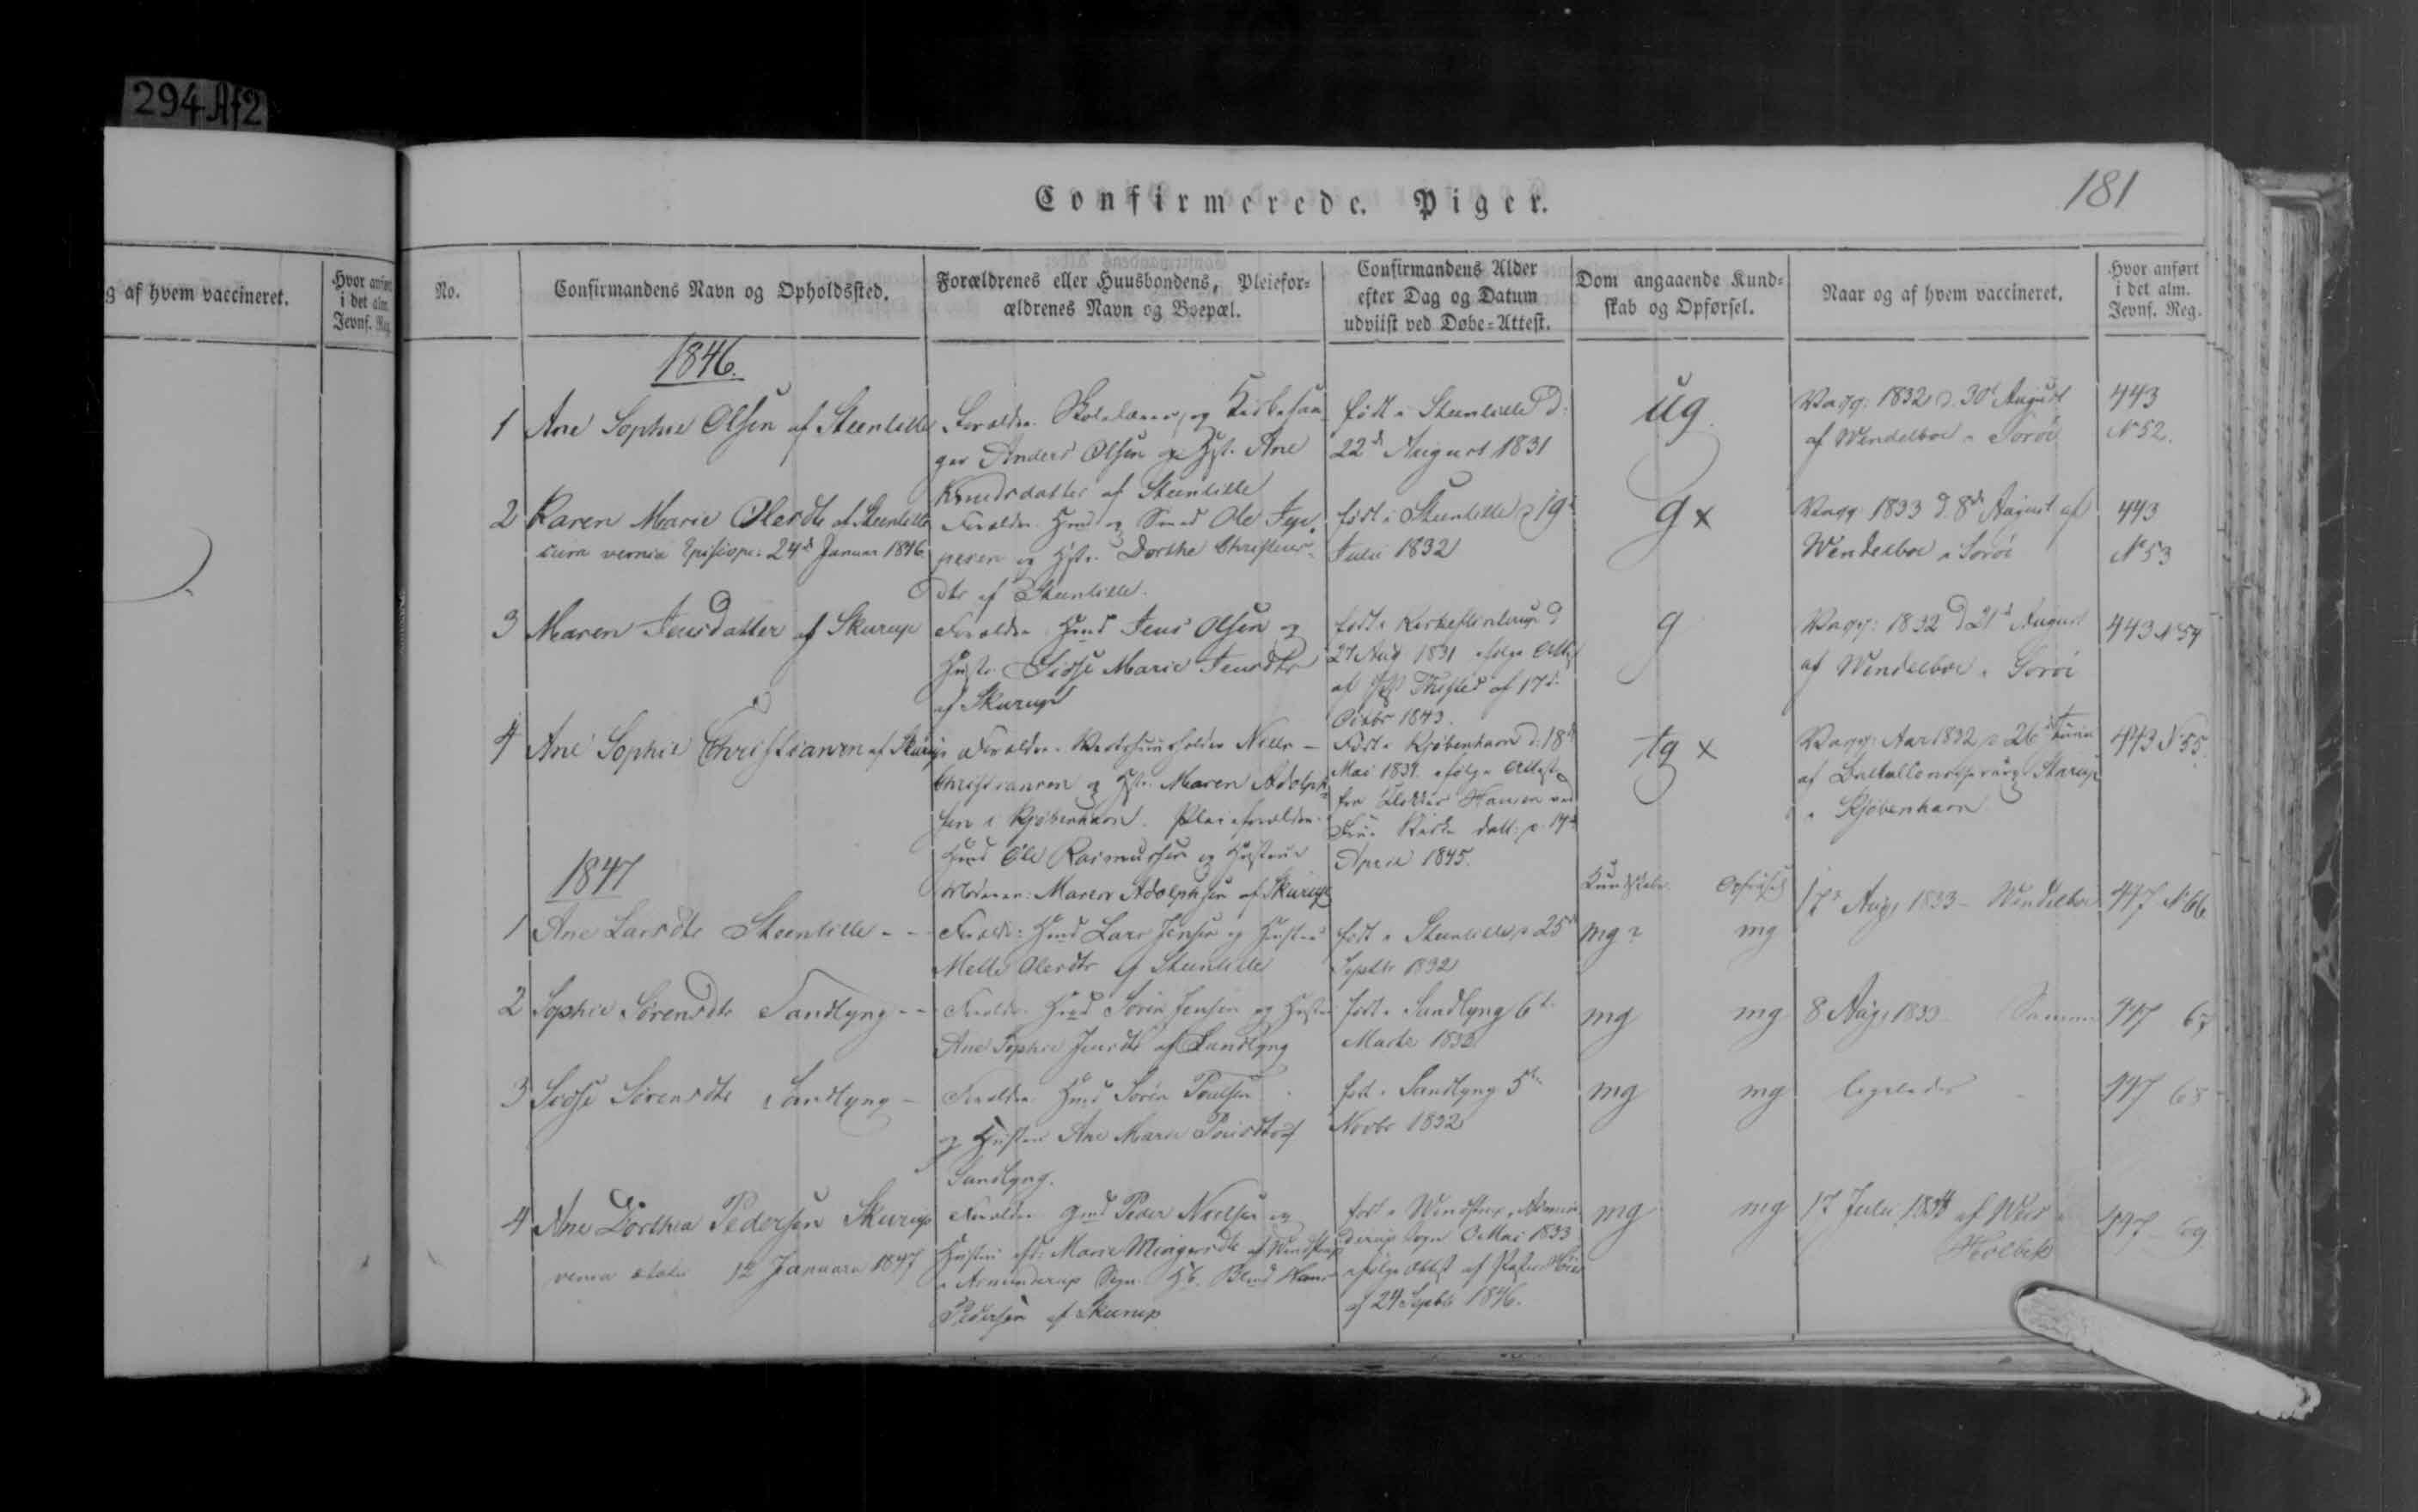 294 Af2
g af hvem vaccineret.
Hvor anført
i det alm.
Jevnf. Reg.
181
Confirmerede Piger.
No.
Confirmandens Navn og Opholdssted.
Forældrenes eller Huusbondens, Pleiefor-
ældrenes Navn og Boepæl.
Confirmandens Alder
efter Dag og Datum
udviist ved Døbe-Attest.
Dom angaaende Kund-
skab og Opførsel.
Naar og af hvem vaccineret.
Hvor anført
i det alm.
Jevnf. Reg.
1846.
1 Ane Sophie Olsen af Steenlille
Forældre Skolelærer og Kirkesan-
ger Anders Olsen og Hst. Ane
Knudsdatter af Steenlille
født i Steenlille d.
22d August 1831
ug.
Vacc. 1832 d. 30t August
af Wendelboe i Sorøe
443
N 52.
2 Karen Marie Olesdtr af Steenlille
cum venia Episcopi 24d Januar 1846
Forældre Hmd og Smed Ole Jep-
pesen og Hstr. Dorthe Christens-
dtr af Steenlille.
født i Steenlille d 19
Julii 1832
g x
Vacc 1833 d. 8d August af
Wendelboe i Sorøe
443
N 53
3 Maren Jensdatter af Skurup
Forældre Hmd Jens Olsen og
Hustr. Sidse Marie Jensdtr
af Skurup
født i Kirkeflinterup d
27 Aug 1831 ifølge Att.
af 17d
Octbr 1843.
g
Vacc: 1832 d 21d August
af Wendelboe i Sorøe
443 N 54
4 Ane Sophie Christiansen af Skurup
Forældre Niels
Christiansen og Hstr. Maren Adolph-
sen i Kjöbenhavn. Pleieforældre
Hmd Ole Rasmussen og Hustrue
Maren Adolphsen af Skurup
Født i Kjöbenhavn d. 18d
Mai 1831 ifølge Attest
fra Klokker Hansen ved
Frue Kirke dat. d. 14d
April 1845.
tg x
Vacc. Aar 1832 d 26 Junii
af Batallonschirurg Starup
i Kjöbenhavn
443 N 55.
1847
Kundskab Opførsel
1 Ane Larsdtr Steenlille - -
Forældr: Hmd Lars Jensen og Hustru
Mette Olesdtr af Steenlille
født i Steenlille d 25d
Septbr 1832
mg ? mg
17d Aug 1833 - Wendelboe
447 N 66
2 Sophie Sørensdtr Sandlyng - -
Forældre Hmd Søren Jensen og Hustru
Ane Sophie Jensdtr af Sandlyng
født i Sandlyng 6t
Marts 1833
mg mg
8 Aug 1833 Samme
447 67
3 Sidse Sørensdtr Sandlyng -
Forældre Hmd Søren Poulsen
og Hustru Ane Marie Poulsdtr af
Sandlyng.
født i Sandlyng 5te
Novbr 1832
mg mg
ligeledes
447 68
4 Ane Dorthea Pedersen Skurup
venia ætatis 12 Januarii 1847
Forældre Gmd Peder Nielsen og
Hustru Marie af Windstrup
i Asminderup Sogn. Hb. Hans
Pedersen af Skurup
født i Windstrup, Asmin-
derup Sogn Mai 1833
ifølge Attest af Pastor
af 24 Septbr 1846.
mg mg
17 Julii 1834 af
Holbek
447 69